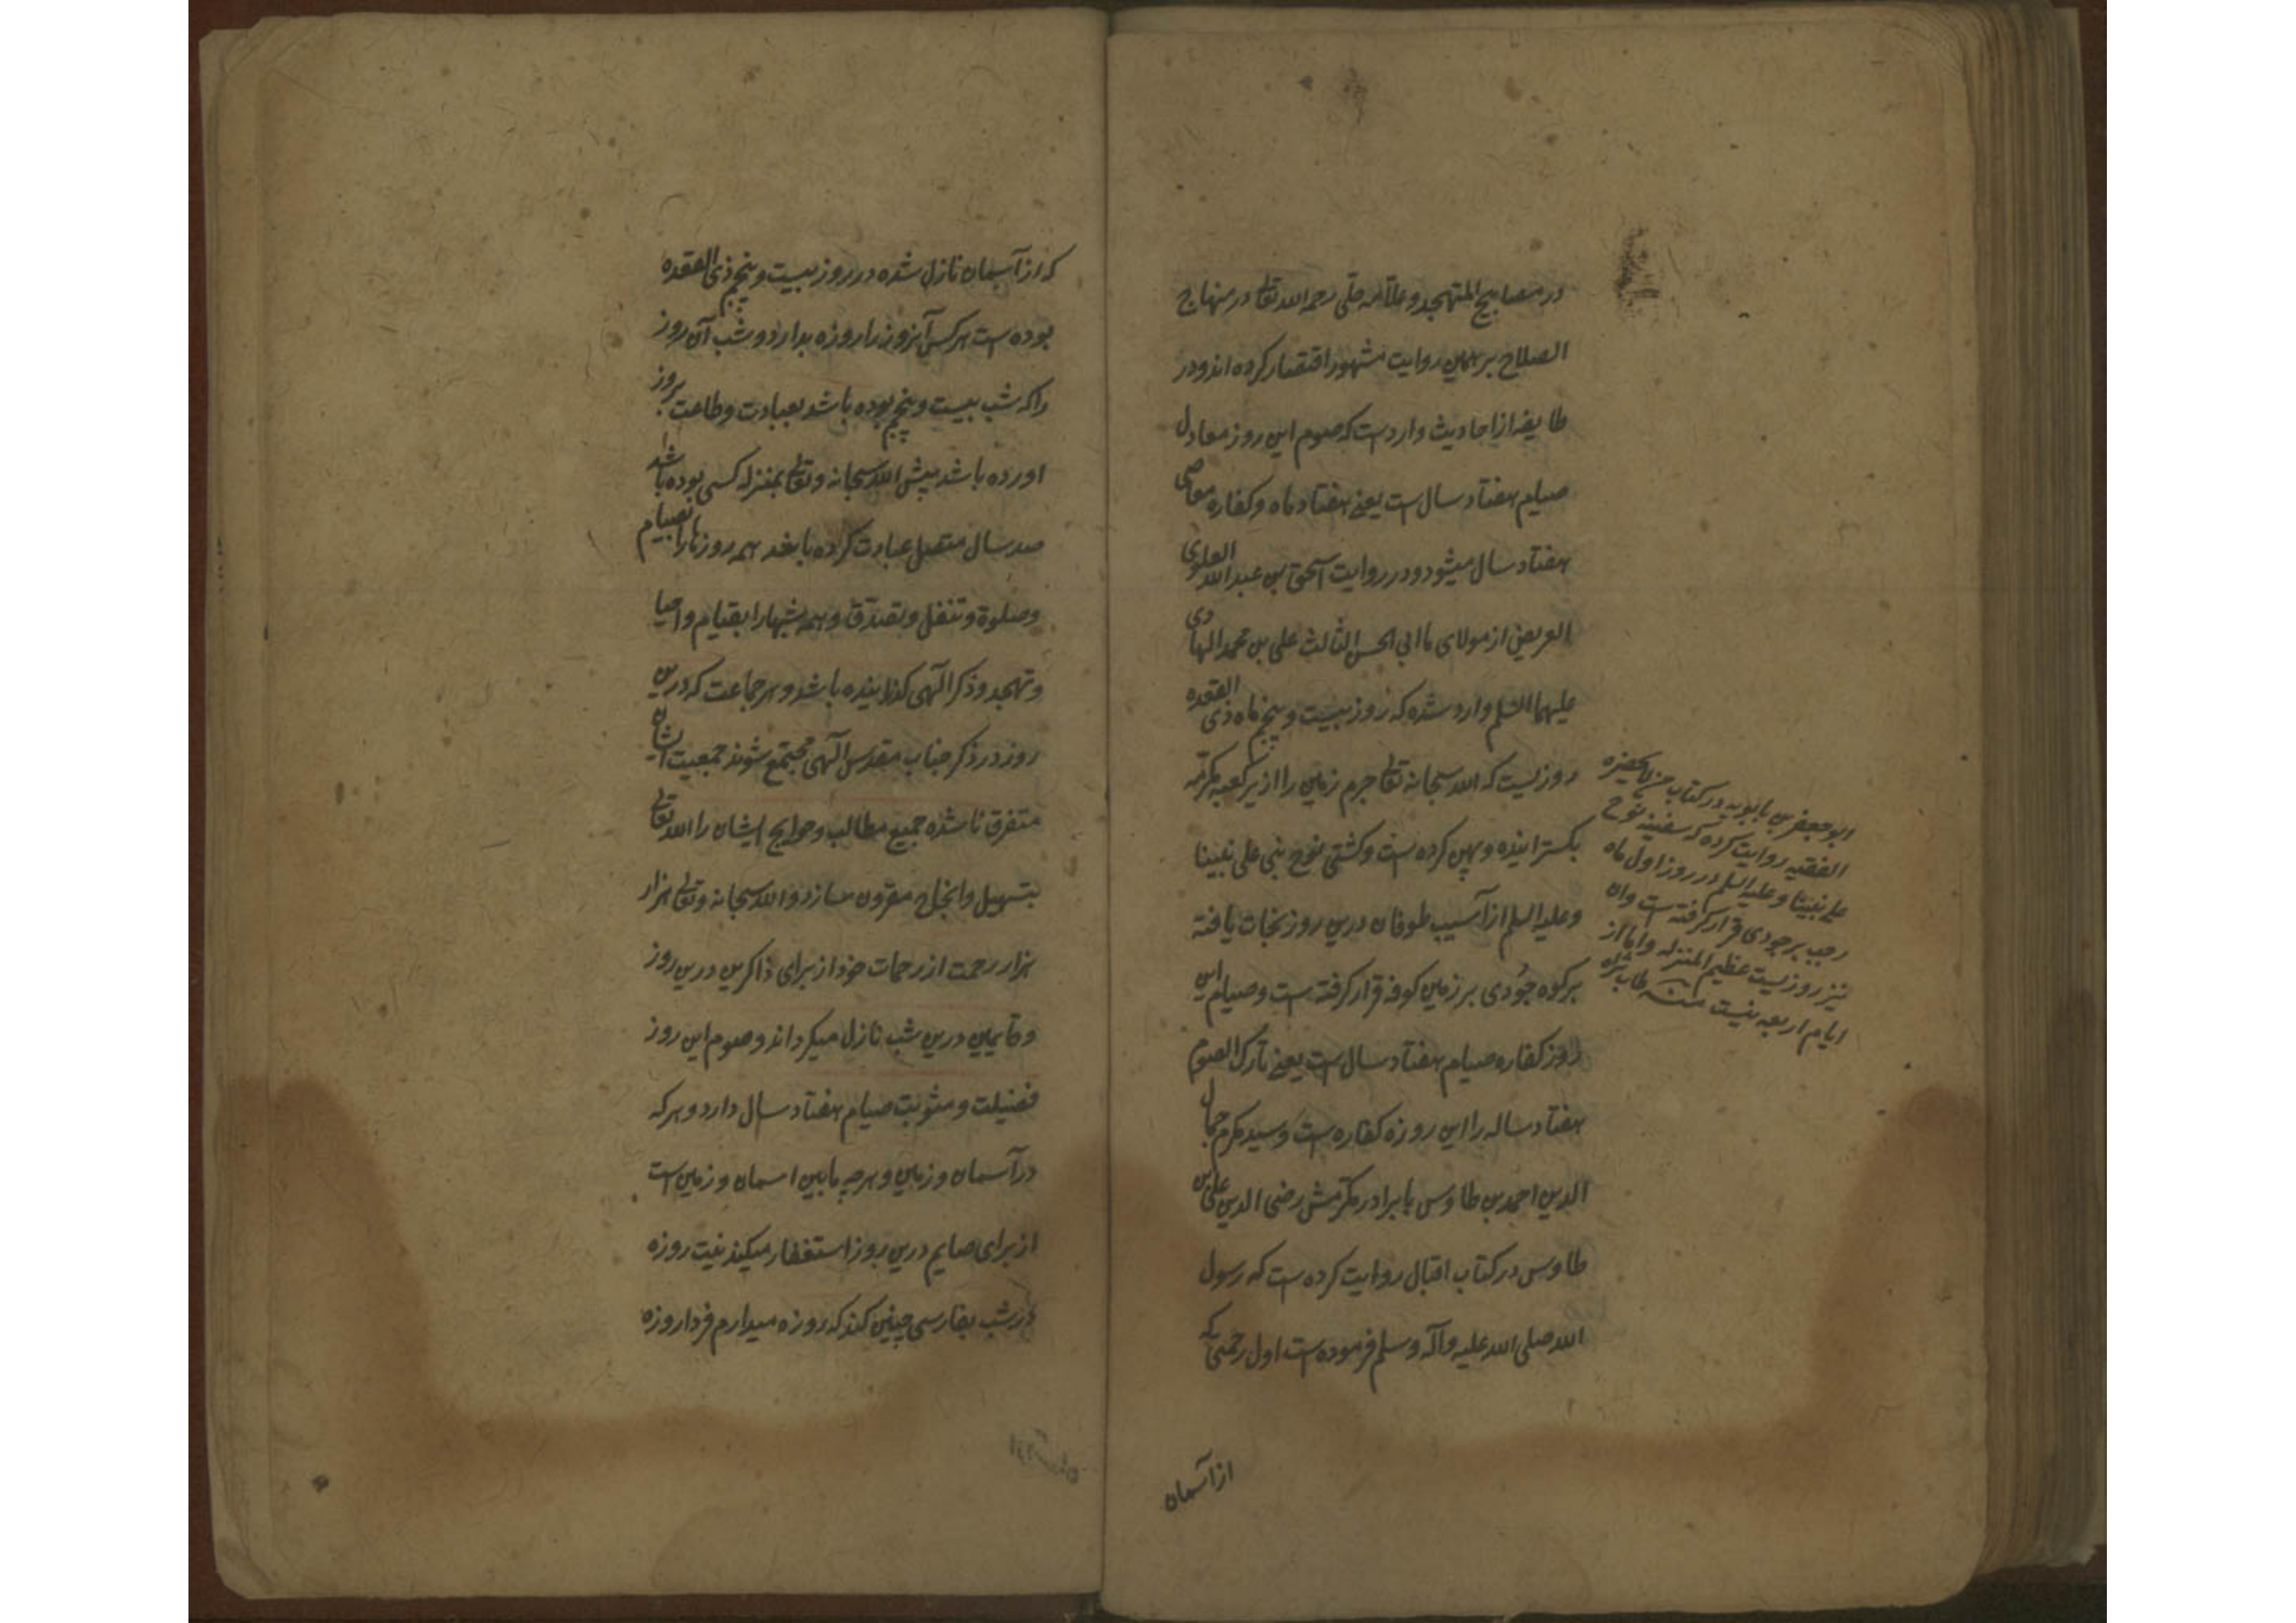 در مصابیح المتهجد و علامه حلی رحمه الله تعالی در منهاج
الصلاح بر همین روایت مشهور اقتصار کرده اند و در
طایفه از احادیث وارد است که صوم این روز معادل
صیام هفتاد سال است یعنی هفتاد ماه و کفاره معاصی
هفتاد سال میشود و در روایت اسحق بن عبد الله العلوی
العریضی از مولای ما ابی الحسن الثالث علی بن محمد الهادی
علیهما السلم وارد شده که روز بیست و پنجم ماه ذی القعده
روزیست که الله سبحانه تعالی جرم زمین را از زیر کعبه مکرمه
بکسترانیده و پهن کرده است و کشتی نوح نبی علی نبینا
و علیه السلم از آسیب طوفان درین روز نجات یافته
بر کوه جودی بر زمین کوفه قرار کرفته است و صیام این
روز کفاره صیام هفتاد سال است یعنی تارک الصوم
هفتاد ساله را این روزه کفاره است و سید مکرم جمال
الدین احمد بن طاوس با برادر مکرمش رضی الدین علی بن
طاوس در کتاب اقبال روایت کرده است که رسول
الله صلی الله علیه و آله و سلم فرموده است اول رحمتی که
از آسمان
ابو جعفر بن بابویه در کتاب من لا یحضره
الفقیه روایت کرده که سفینه نوح
علی نبینا و علیه السلم در روز اول ماه
رجب بر جودی قرار کرفته است وان
نیز روزیست عظیم المنزله و اما از
ایام اربعه نیست منه طاب ثراه
که از آسمان نازل شده در روز بیست و پنجم ذی القعده
بوده است هر کس آنروز را روزه بدارد و شب آن روز
را که شب بیست و پنجم بوده باشد بعبادت و طاعت بروز
اورده باشد پیش الله سبحانه و تعالی بمنزله کسی بوده باشد
صد سال متصل عبادت کرده باشد همه روزها را بصیام
و صلوة و تنفل و تصدق و همه شبها را بقیام و احیا
و تهجد و ذکر الهی کذرانیده باشد و هر جماعت که درین
روز در ذکر جناب مقدس الهی مجتمع شوند جمعیت ایشان
متفرق ناشده جمیع مطالب و حوایج ایشان را الله تعالی
بتسهیل و انجاح مقرون سازد و الله سبحانه و تعالی هزار
هزار رحمت از رحمات خود از برای ذاکرین درین روز
و قایمین درین شب نازل میکرداند و صوم این روز
فضیلت و مثوبت صیام هفتاد سال دارد و هر که
در آسمان و زمین و هر چه مابین اسمان و زمین است
از برای صایم درین روز استغفار میکند نیت روزه
در شب بفارسی چنین کند که روزه میدارم فردا روزه